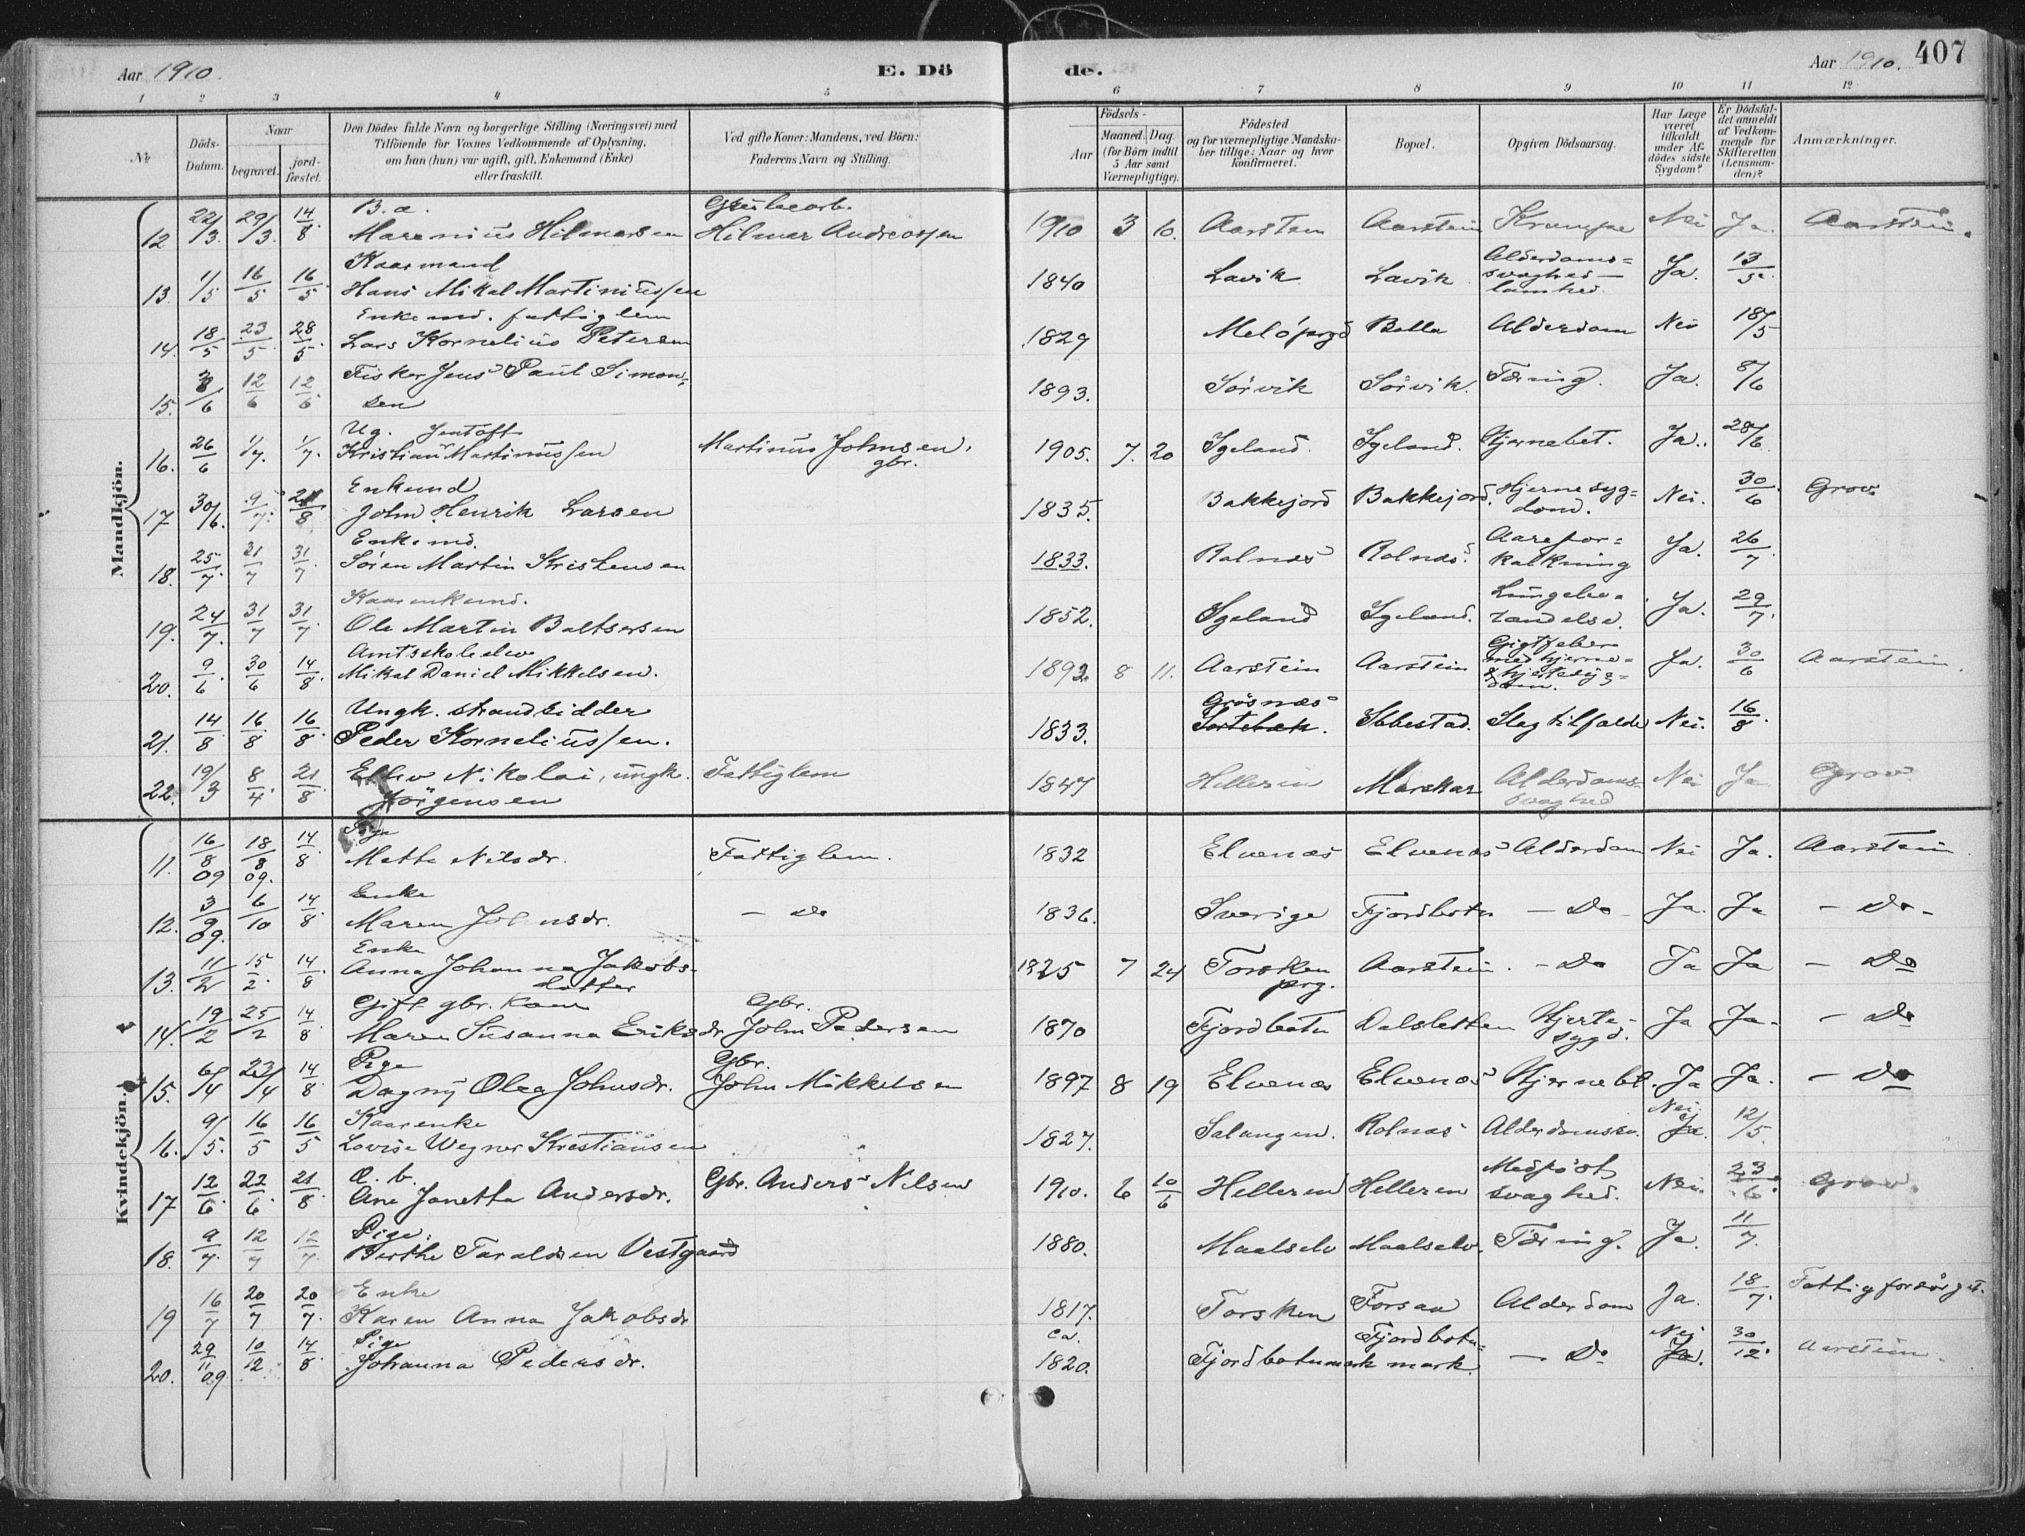 Aar 1910. E. Dö de. Aar 1910. 407
1 2 3 4 5 6 7 8 9 10 11 12
No. Döds-Datum. Naar begravet. jord-fæstet. Den Dödes fulde Navn og borgerlige Stilling (Næringsvei) med Tilföiende for Voxnes Vedkommende af Oplysning, om han (hun) var ugift, gift, Enkemand (Enke) eller fraskilt. Ved gifte Koner: Mandens, ved Börn: Faderens Navn og Stilling. Födsels- Aar Maaned. Dag. (for Börn indtil 5 Aar samt Værnepligtige). Födested og for værnepligtige Mandskaber tillige: Naar og hvor Konfirmeret. Bopæl. Opgiven Dödsaarsag. Har Læge været tilkaldt under Afdödes sidste Sygdom? Er Dödsfaldet anmeldt af Vedkommende for Skifteretten (Lensmanden)? Anmærkninger.
Mandkjön.
12 22/3 29/3 14/8 B. a. Marenius Hilmarsen Hilmar Andreassen 1910 3 10. Aarsten Aarstein Krampe Nei Ja. Aarstein.
13. 1/5 16/5 16/5 Kaarmand Hans Mikal Martiniussen 1840 Lavik Lavik Alderdoms=svaghed — lamhed. Ja. 13/5.
14. 18/5 23/5. 28/5. Enkemd. fattiglem Lars Kornelius Petersen 1829 Melöprgd Bolla Alderdom Nei 18/5
15. 8/6 12/6 12/6 Fisker Jens Paul Simonsen 1893. Sörvik Sörvik. Tæring. Ja. 8/6
16. 26/6 1/7. 1/7. Ug. Jentoft Kristian Martinussen Martinus Johnsen, gbr. 1905. 7. 20 Igeland. Igeland. Hjernebet. Ja. 28/6.
17 30/6. 9/7. 21/8 Enkemd John Henrik Larsen 1835. Bakkejord Bakkejord. Hjernesyg=dom. Nei. 30/6. Grov
18. 25/7. 31/7 31/7. Enkemd. Sören Martin Kristensen 1833. Rolnæs Rolnæs. Aarefor=kalkning Ja. 26/7
19. 24/7. 31/7 31/7. Kaarenkemd. Ole Martin Baltsersen 1852. Igeland Igeland. Lungebe=tændelse. Ja. 29/7.
20. 9/6. 30/6 14/8. Amtsskoleelev Mikal Daniel Mikkelsen. 1892. 8 11. Aarstein Aarstein Gigtfeber med hjerne= & hjertesyg=dom. Ja. 30/6 Aarstein.
21. 14/8 16/8 16/8. Ungk. strandsidder Peder Korneliussen. 1833. Grösnæs Ibbestad. Slagtilfælde Nei. 16/8.
22. 19/3 8/4. 21/8 Ellev Nikolai, ungk. Jörgensen Fattiglem 1847 Helleren Marskar Alderdoms-svaghed Nei Ja Grov.
Kvindekjön.
11. 16/8 09 18/8 09. 14/8. Pige Mette Nilsdr. Fattiglem. 1832 Elvenæs Elvenæs Alderdom Nei Ja. Aarstein.
12. 3/9 09. 6/10 14/8. Enke Maren Johnsdr. — Do 1836. Sverige Fjordbotn — Do — Ja. Ja — Do —
13. 11/2 15/2. 14/8 Enke Anna Johanna Jakobsdatter 1825 7 24 Torsken prg. Aarstein. — Do Ja Ja — Do
14. 19/2 25/2 14/8 Gift gbr. kone Maren Susanna Eriksdr Gbr. John Pedersen 1870 Fjordbotn Dalsletten Hjerte-sygd. Ja Ja. — Do
15. 6/4 23/4 14/8. Pige Dagny Olea Johnsdr. Gbr. John Mikkelsen 1897 8 19 Elvenæs Elvenæs Hjernebet. Ja Ja. — Do
16. 9/5. 16/5 16/5 Kaarenke Lovise Wegner Kristiansen 1827. Salangen. Rolnæs Alderdomssv. Nei Ja. 12/5
17 12/6. 22/6. 21/8. Æ. b. Ane Janetta Andersdr. Gbr. Anders Nilsen 1910. 6 10/6 Helleren Helleren Medfödt svaghed. Nei. 23/6. Grov.
18. 9/7. 12/7 12/7. Pige. Berthe Taraldsen Vestgaard 1880. Maalselv Maalselv. Tæring. Ja. 11/7.
19 16/7 20/7 20/7. Enke Karen Anna Jakobsdr 1817. Torsken Forsaa Alderdom Ja. 18/7. Fattigforsörget.
20. 29/11 09 10/12. 14/8 Pige Johanna Pedersdr. ca. 1820. Fjordbotnmark Fjordbotn=mark. — Do Nei Ja. 30/12. Aarstein.